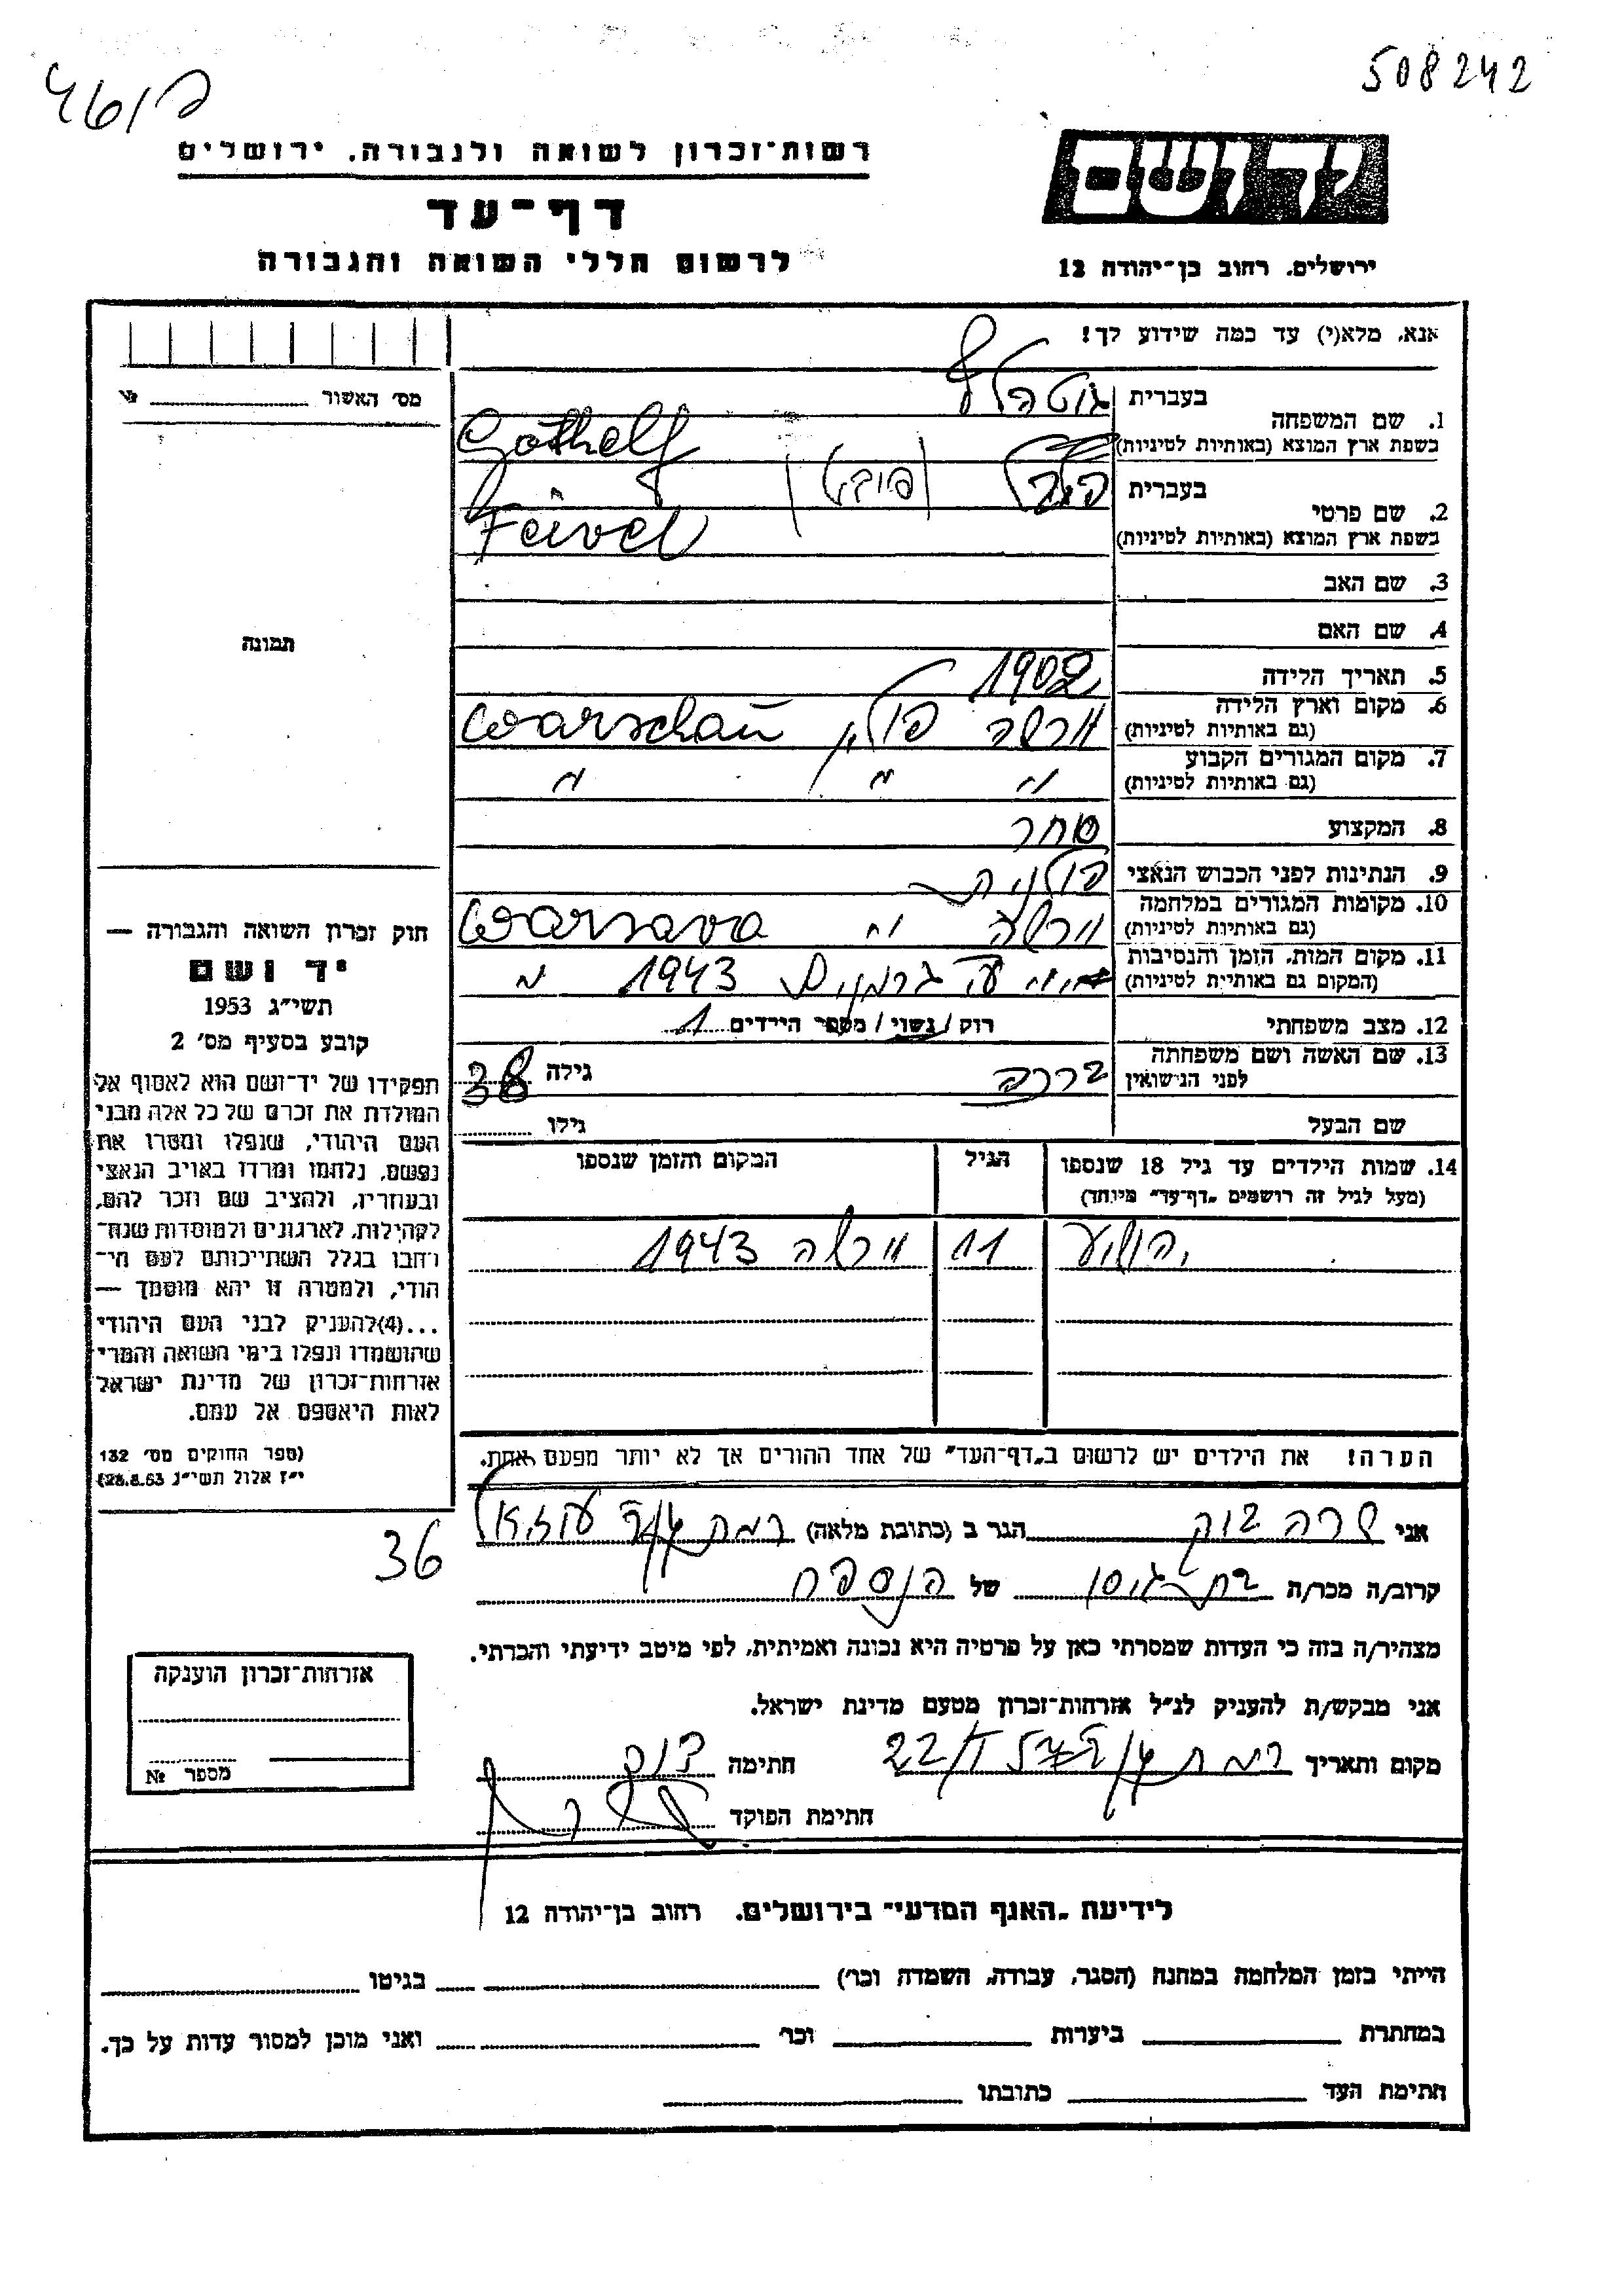 508242
רשות־זכרון לשואה ולגבורה, ירושלים
יד ושם
דף־עד
לרשום חללי השואה והגבורה
ירושלים, רחוב בן־יהודה 12
אנא, מלא(י) עד כמה שידוע לך!
מס׳ האשור №
1. שם המשפחה
בעברית גוטהלף
בשפת ארץ המוצא (באותיות לטיניות) Gothelf
2. שם פרטי
בעברית
בשפת ארץ המוצא (באותיות לטיניות) Feivel
3. שם האב
4. שם האם
תמונה
5. תאריך הלידה 1902
6. מקום וארץ הלידה ורשה פולין Warschau
(גם באותיות לטיניות)
7. מקום המגורים הקבוע " " "
(גם באותיות לטיניות)
8. המקצוע סוחר
9. הנתינות לפני הכבוש הנאצי פולנית
10. מקומות המגורים במלחמה ורשה " Warsava
(גם באותיות לטיניות)
11. מקום המות, הזמן והנסיבות גרמנים 1943 "
(המקום גם באותיות לטיניות)
12. מצב משפחתי רוק/נשוי/מספר הילדים 1
13. שם האשה ושם משפחתה
לפני הנישואין גילה 38
שם הבעל גילו
14. שמות הילדים עד גיל 18 שנספו הגיל המקום והזמן שנספו
(מעל לגיל זה רושמים „דף־עד" מיוחד)
יהושע 11 ורשה 1943
הערה! את הילדים יש לרשום ב„דף־העד" של אחד ההורים אך לא יותר מפעם אחת.
חוק זכרון השואה והגבורה —
יד ושם
תשי״ג 1953
קובע בסעיף מס׳ 2
תפקידו של יד־ושם הוא לאסוף אל
המולדת את זכרם של כל אלה מבני
העם היהודי, שנפלו ומסרו את
נפשם, נלחמו ומרדו באויב הנאצי
ובעוזריו, ולהציב שם וזכר להם,
לקהילות, לארגונים ולמוסדות שנח־
רבו בגלל השתייכותם לעם הי־
הודי, ולמטרה זו יהא מוסמך —
...(4) להעניק לבני העם היהודי
שהושמדו ונפלו בימי השואה והמרי
אזרחות־זכרון של מדינת ישראל
לאות היאספם אל עמם.
(ספר החוקים מס׳ 132
י״ז אלול תשי״ג 28.8.53)
36
אני שרה בוק הגר ב (כתובת מלאה) רמת
קרוב/ה מכר/ה בת־גיסו של הנספה
מצהיר/ה בזה כי העדות שמסרתי כאן על פרטיה היא נכונה ואמיתית, לפי מיטב ידיעתי והכרתי.
אני מבקש/ת להעניק לנ״ל אזרחות־זכרון מטעם מדינת ישראל.
מקום ותאריך רמת 22/ חתימה בוק
חתימת הפוקד
אזרחות־זכרון הוענקה
מספר №
לידיעת „האגף המדעי" בירושלים, רחוב בן־יהודה 12
הייתי בזמן המלחמה במחנה (הסגר, עבודה, השמדה וכו׳) בגיטו
במחתרת ביערות וכו׳ ואני מוכן למסור עדות על כך.
חתימת העד כתובתו